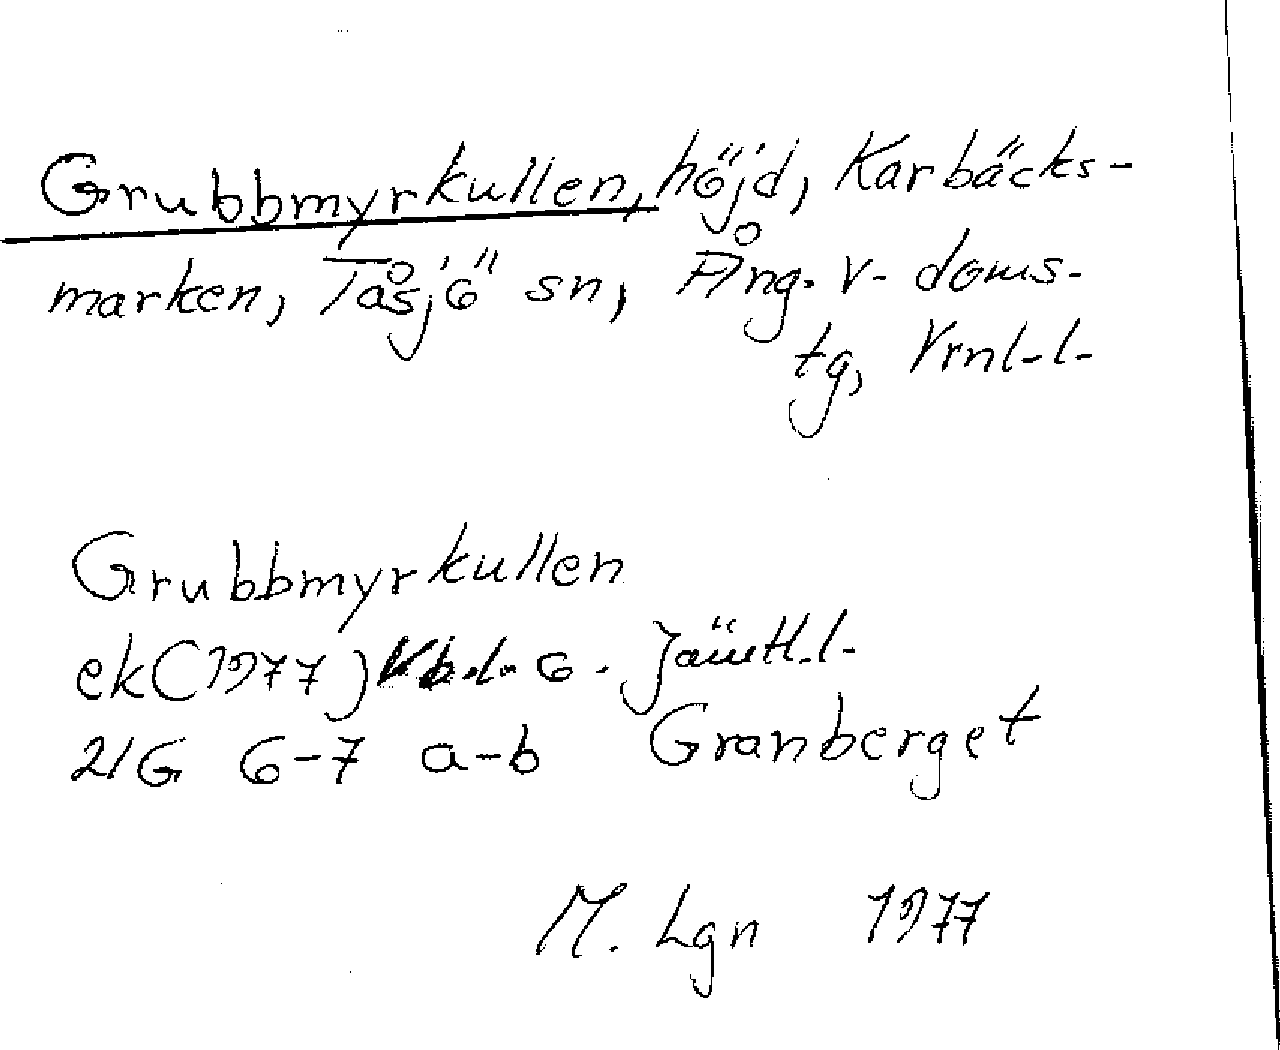 Grubbmyrkullen, höjd, Karbäcks-
marken, Tåsjö sn, Ång. v- doms-
tg, Vrnl-l-
Grubbmyrkullen
ek(1977) Vb.l. o. Jämtl.l-
21G 6-7 a-b Granberget
M. Lgn 1977